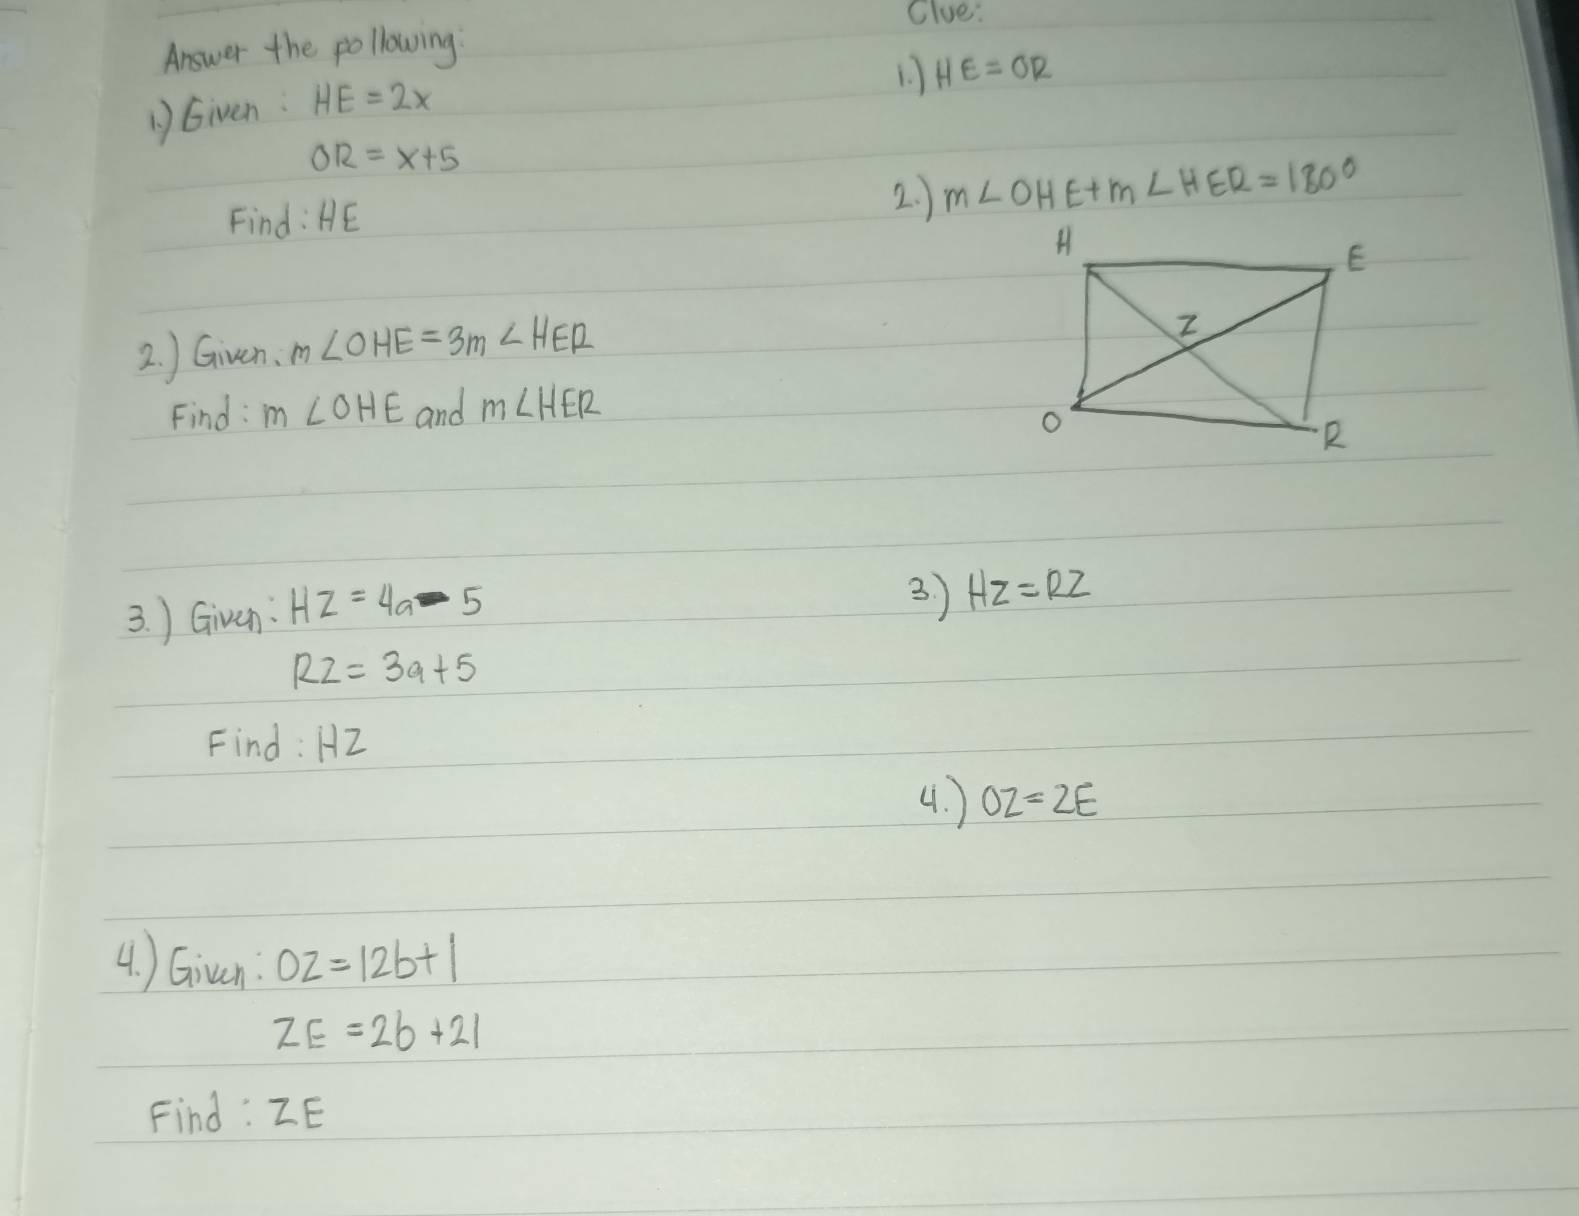 Answer the following:
1.) Given: HE = 2x
OR = x+5
Find: HE
2.) Given: m∠OHE = 3m∠HER
Find: m∠OHE and m∠HER
3.) Given: HZ = 4a - 5
RZ = 3a+5
Find: HZ
4.) Given: OZ = 12b+1
ZE = 2b+21
Find: ZE
Clue:
1.) HE = OR
2.) m∠OHE + m∠HER = 180°
H
E
Z
O
R
3.) HZ = RZ
4.) OZ = ZE